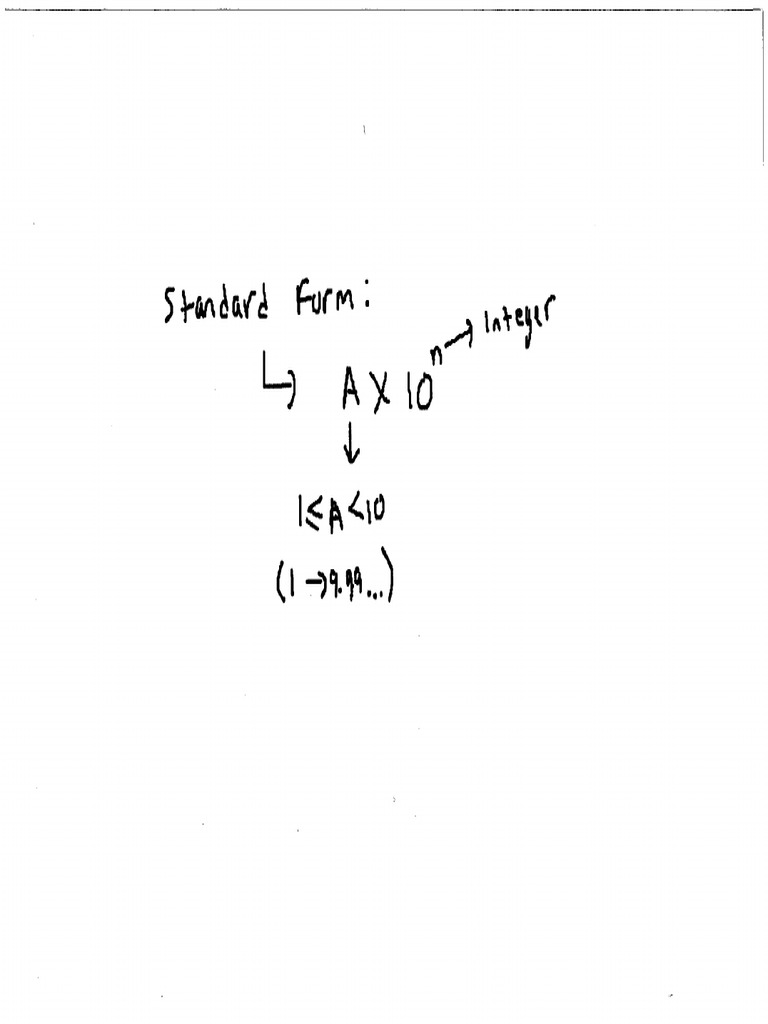 Standard Form:
↳ A × 10ⁿ → Integer
↓
1 ≤ A < 10
(1 → 9.99...)